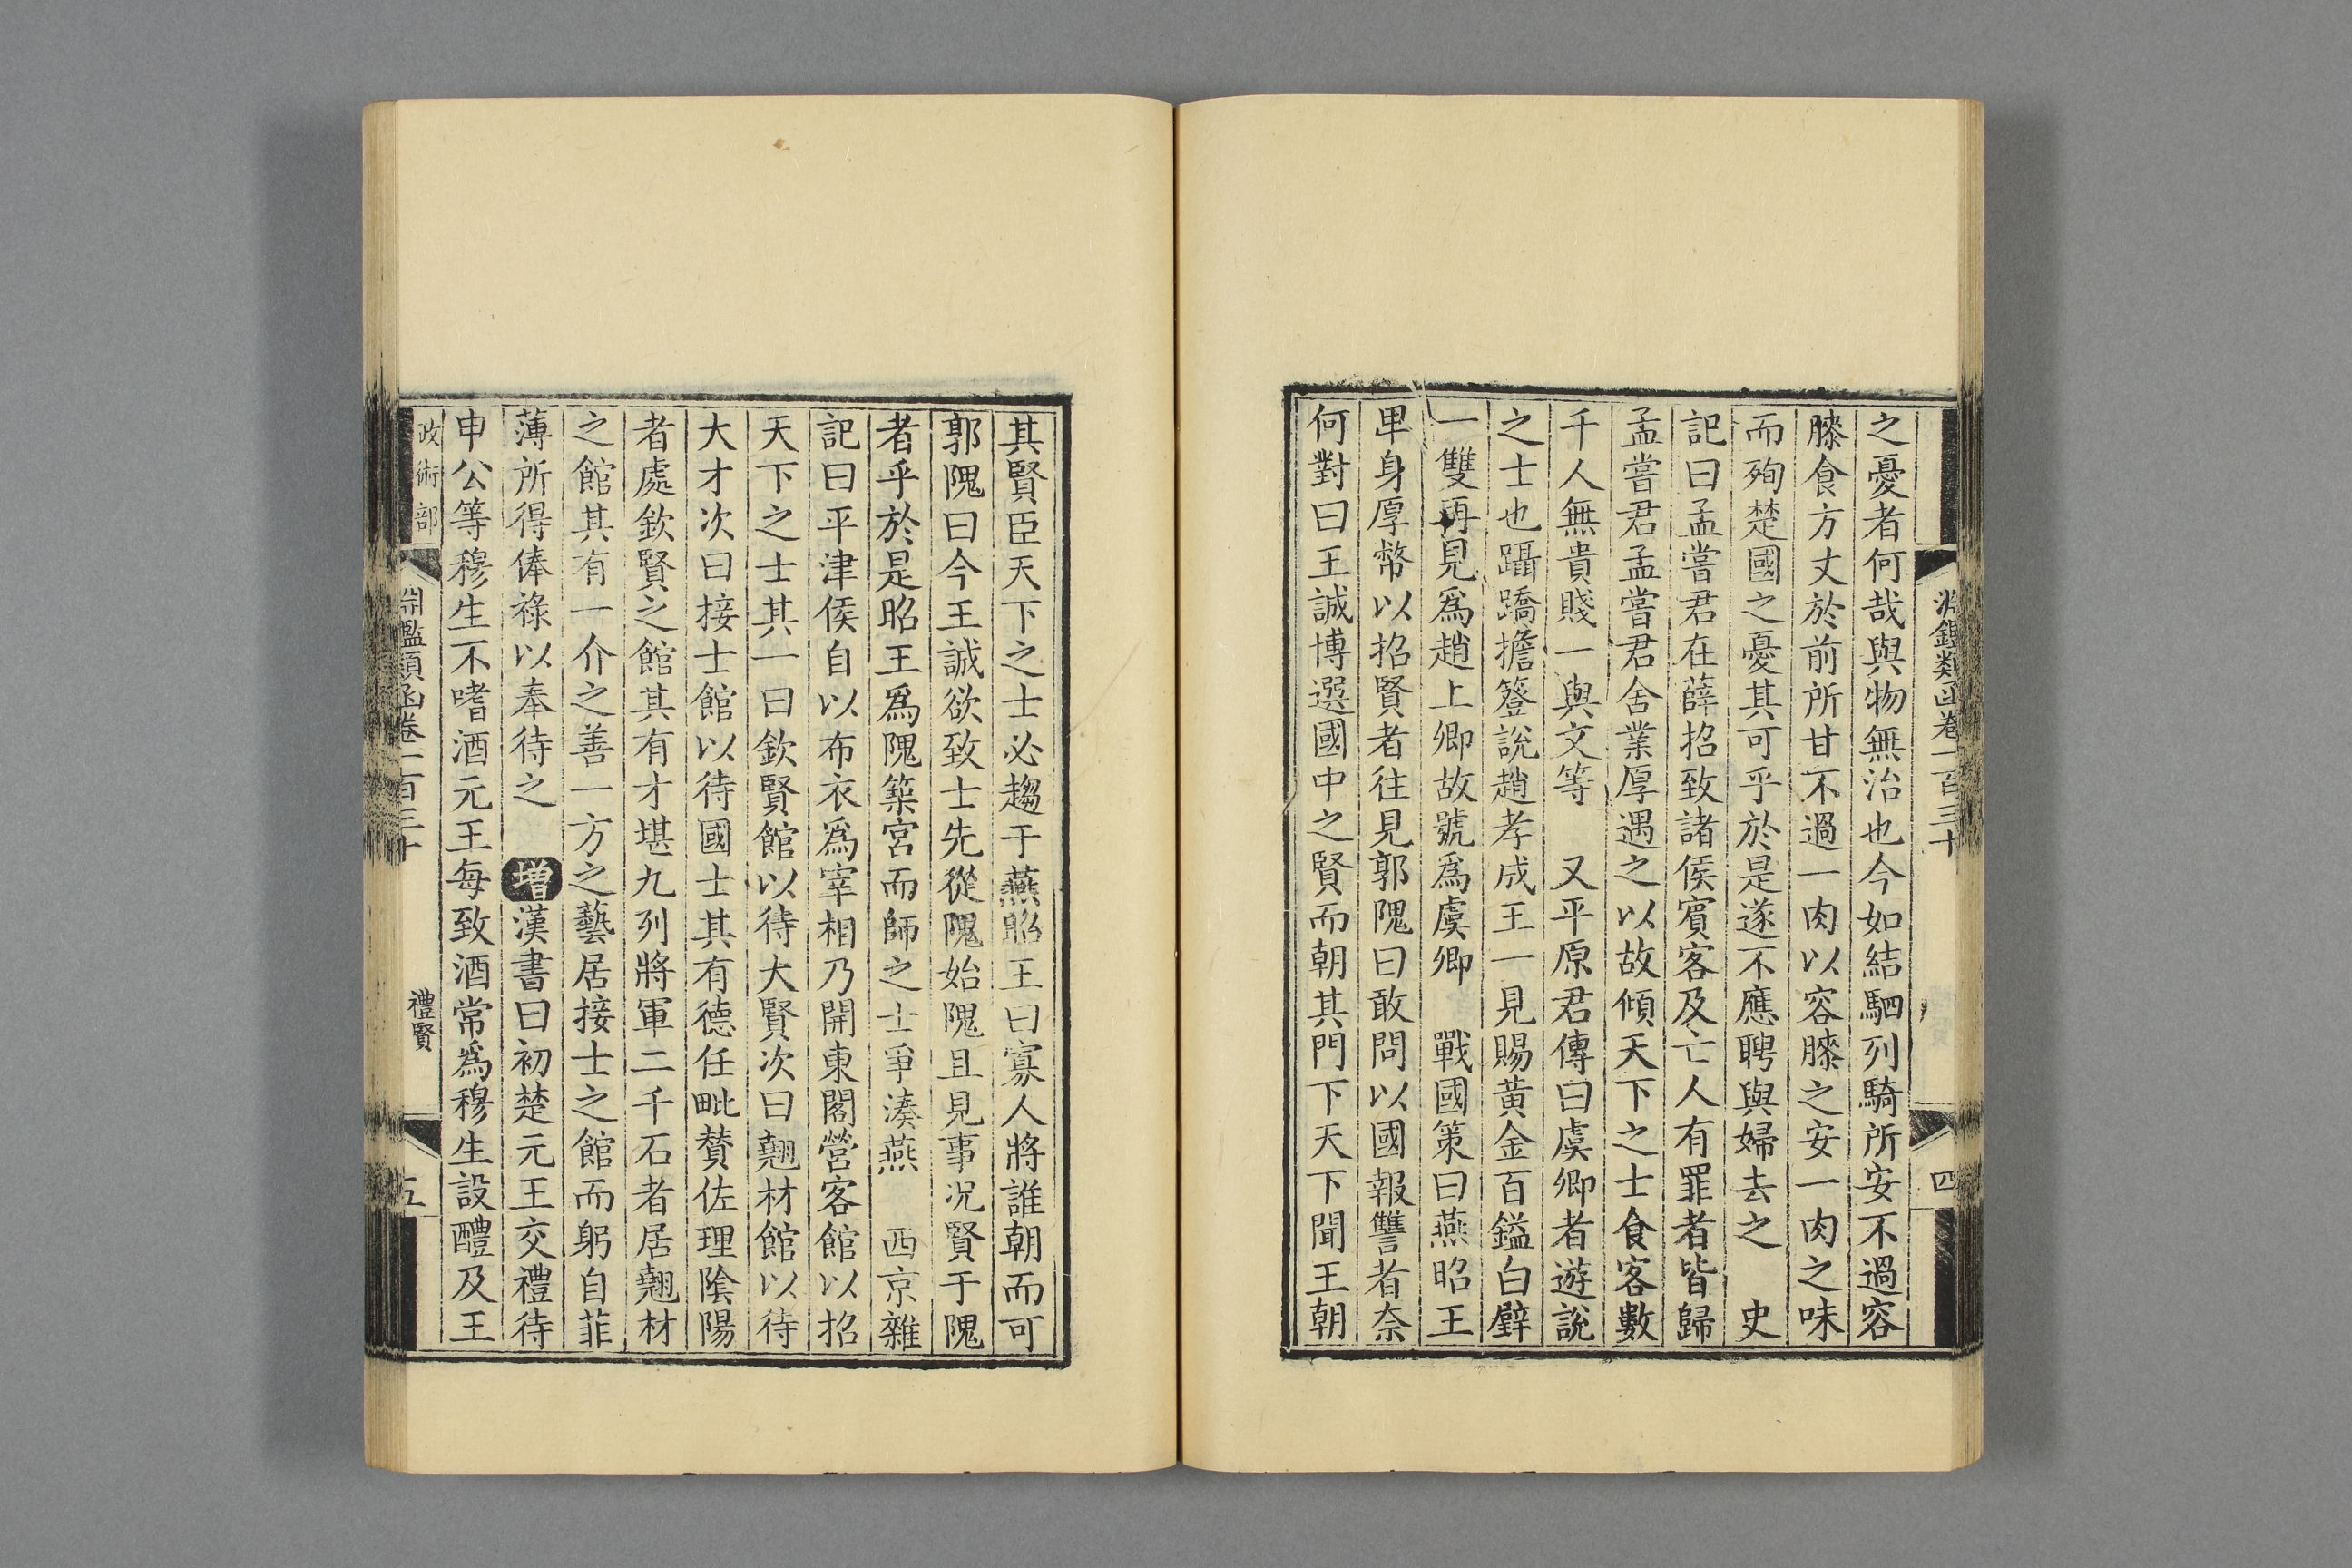 淵鑑類函卷一百三十
四
之憂者何哉與物無治也今如結駟列騎所安不過容
膝食方丈於前所甘不過一肉以容膝之安一肉之味
而殉楚國之憂其可乎於是遂不應聘與婦去之　史
記曰孟嘗君在薛招致諸侯賓客及亡人有罪者皆歸
孟嘗君孟嘗君舍業厚遇之以故傾天下之士食客數
千人無貴賤一與文等　又平原君傳曰虞卿者遊說
之士也躡蹻擔簦說趙孝成王一見賜黃金百鎰白璧
一雙再見爲趙上卿故號爲虞卿　戰國策曰燕昭王
卑身厚幣以招賢者往見郭隗曰敢問以國報讐者奈
何對曰王誠博選國中之賢而朝其門下天下聞王朝
其賢臣天下之士必趨于燕昭王曰寡人將誰朝而可
郭隗曰今王誠欲致士先從隗始隗且見事况賢于隗
者乎於是昭王爲隗築宮而師之士爭湊燕　西京雜
記曰平津侯自以布衣爲宰相乃開東閣營客館以招
天下之士其一曰欽賢館以待大賢次曰翹材館以待
大才次曰接士館以待國士其有德任毗贊佐理陰陽
者處欽賢之館其有才堪九列將軍二千石者居翹材
之館其有一介之善一方之藝居接士之館而躬自菲
薄所得俸祿以奉待之　增漢書曰初楚元王交禮待
申公等穆生不嗜酒元王每致酒常爲穆生設醴及王
政術部
淵鑑類函卷一百三十
禮賢
五